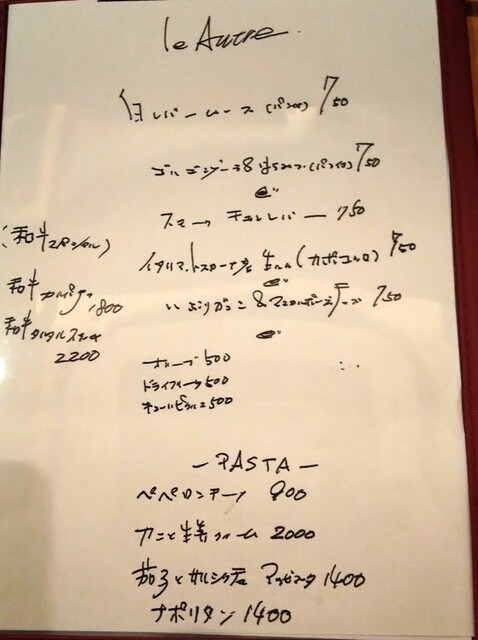 le Autre
白レバームース(パン付) 750
ゴルゴンゾーラ&はちみつ(パン付) 750
スモーク チキンレバー 750
イタリア トスカーナ産 生ハム(カポコッロ) 750
いぶりがっこ&マスカルポーネチーズ 750
(和牛スペシャル)
和牛カルパッチョ 1800
和牛タルタルステーキ 2200
オリーブ 500
ドライフルーツ 500
キューリピクルス 500
— PASTA —
ペペロンチーノ 900
カニと生姜クリーム 2000
茄子とサルシッチャ アラビアータ 1400
ナポリタン 1400